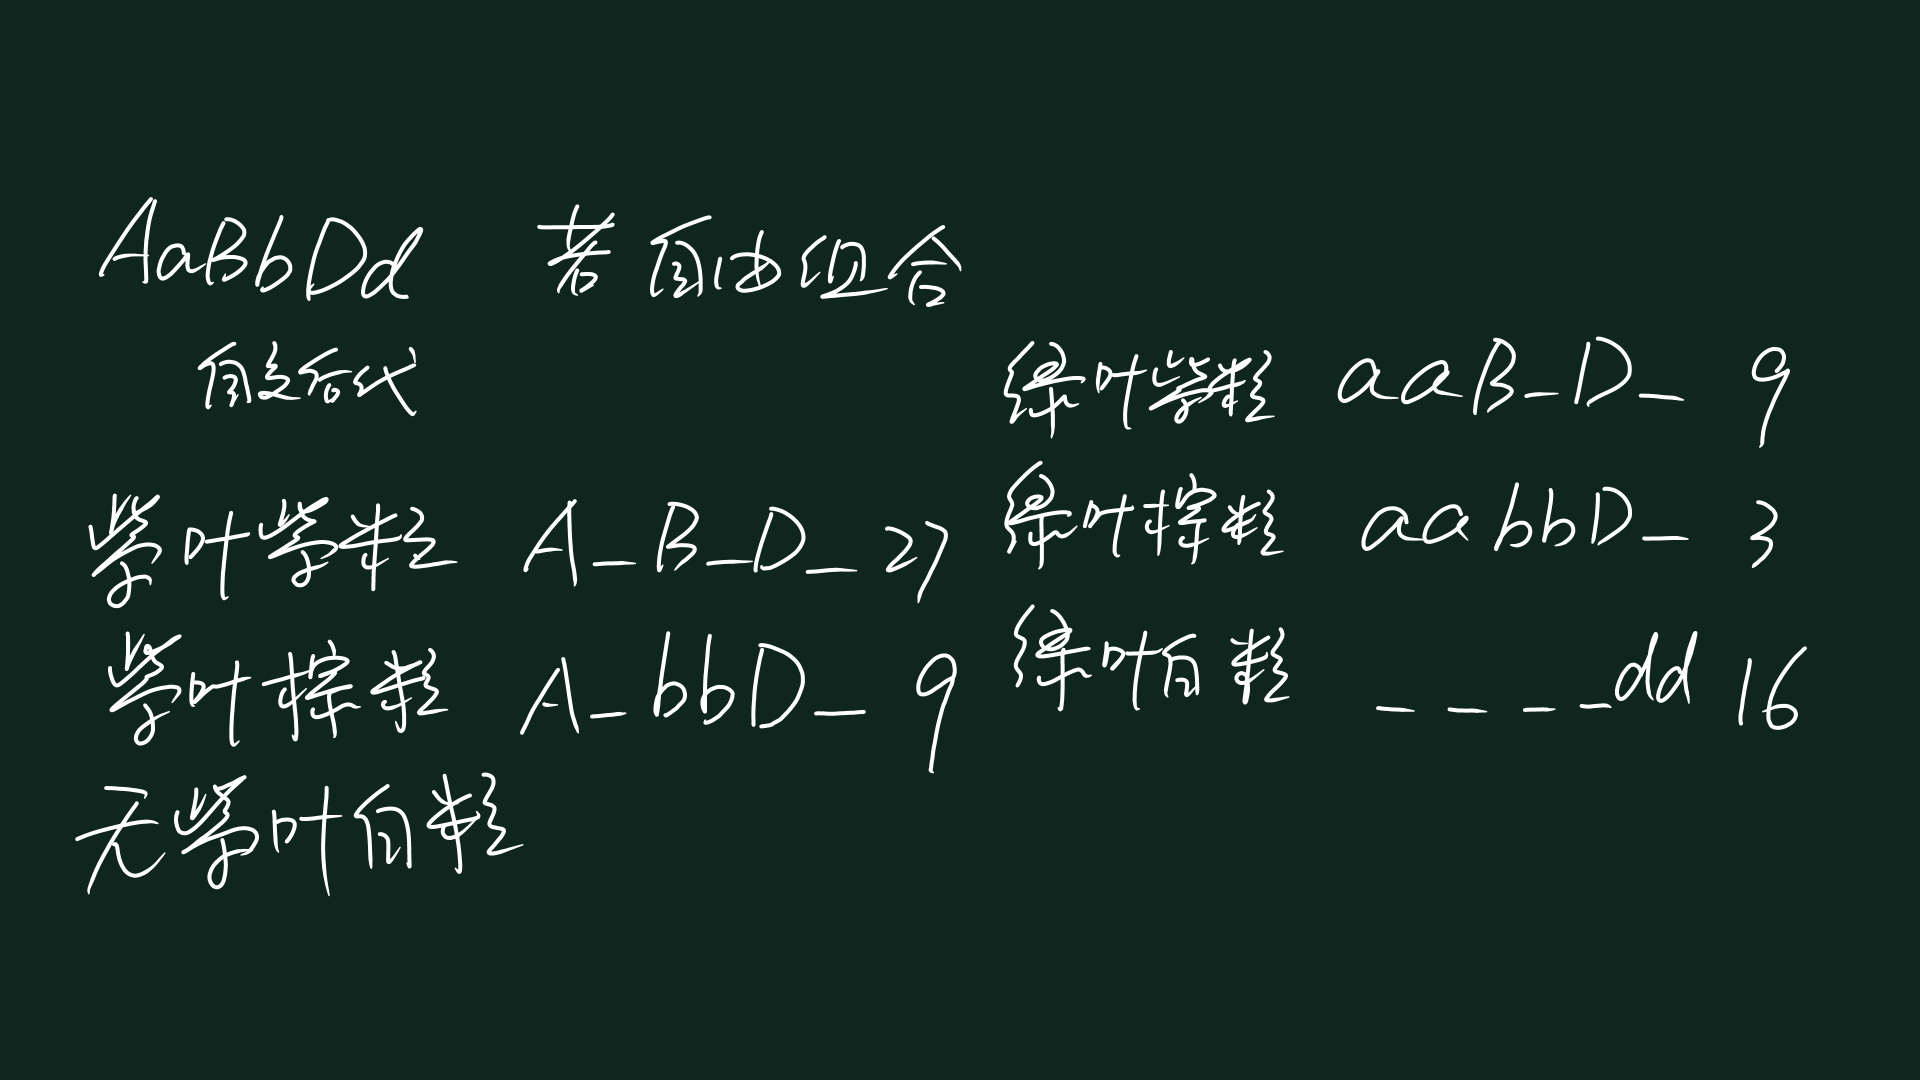 AaBbDd 若自由组合
自交后代
紫叶紫粒 A_B_D_ 27
紫叶棕粒 A_bbD_ 9
无紫叶白粒
绿叶紫粒 aaB_D_ 9
绿叶棕粒 aabbD_ 3
绿叶白粒 _ _ _ _dd 16